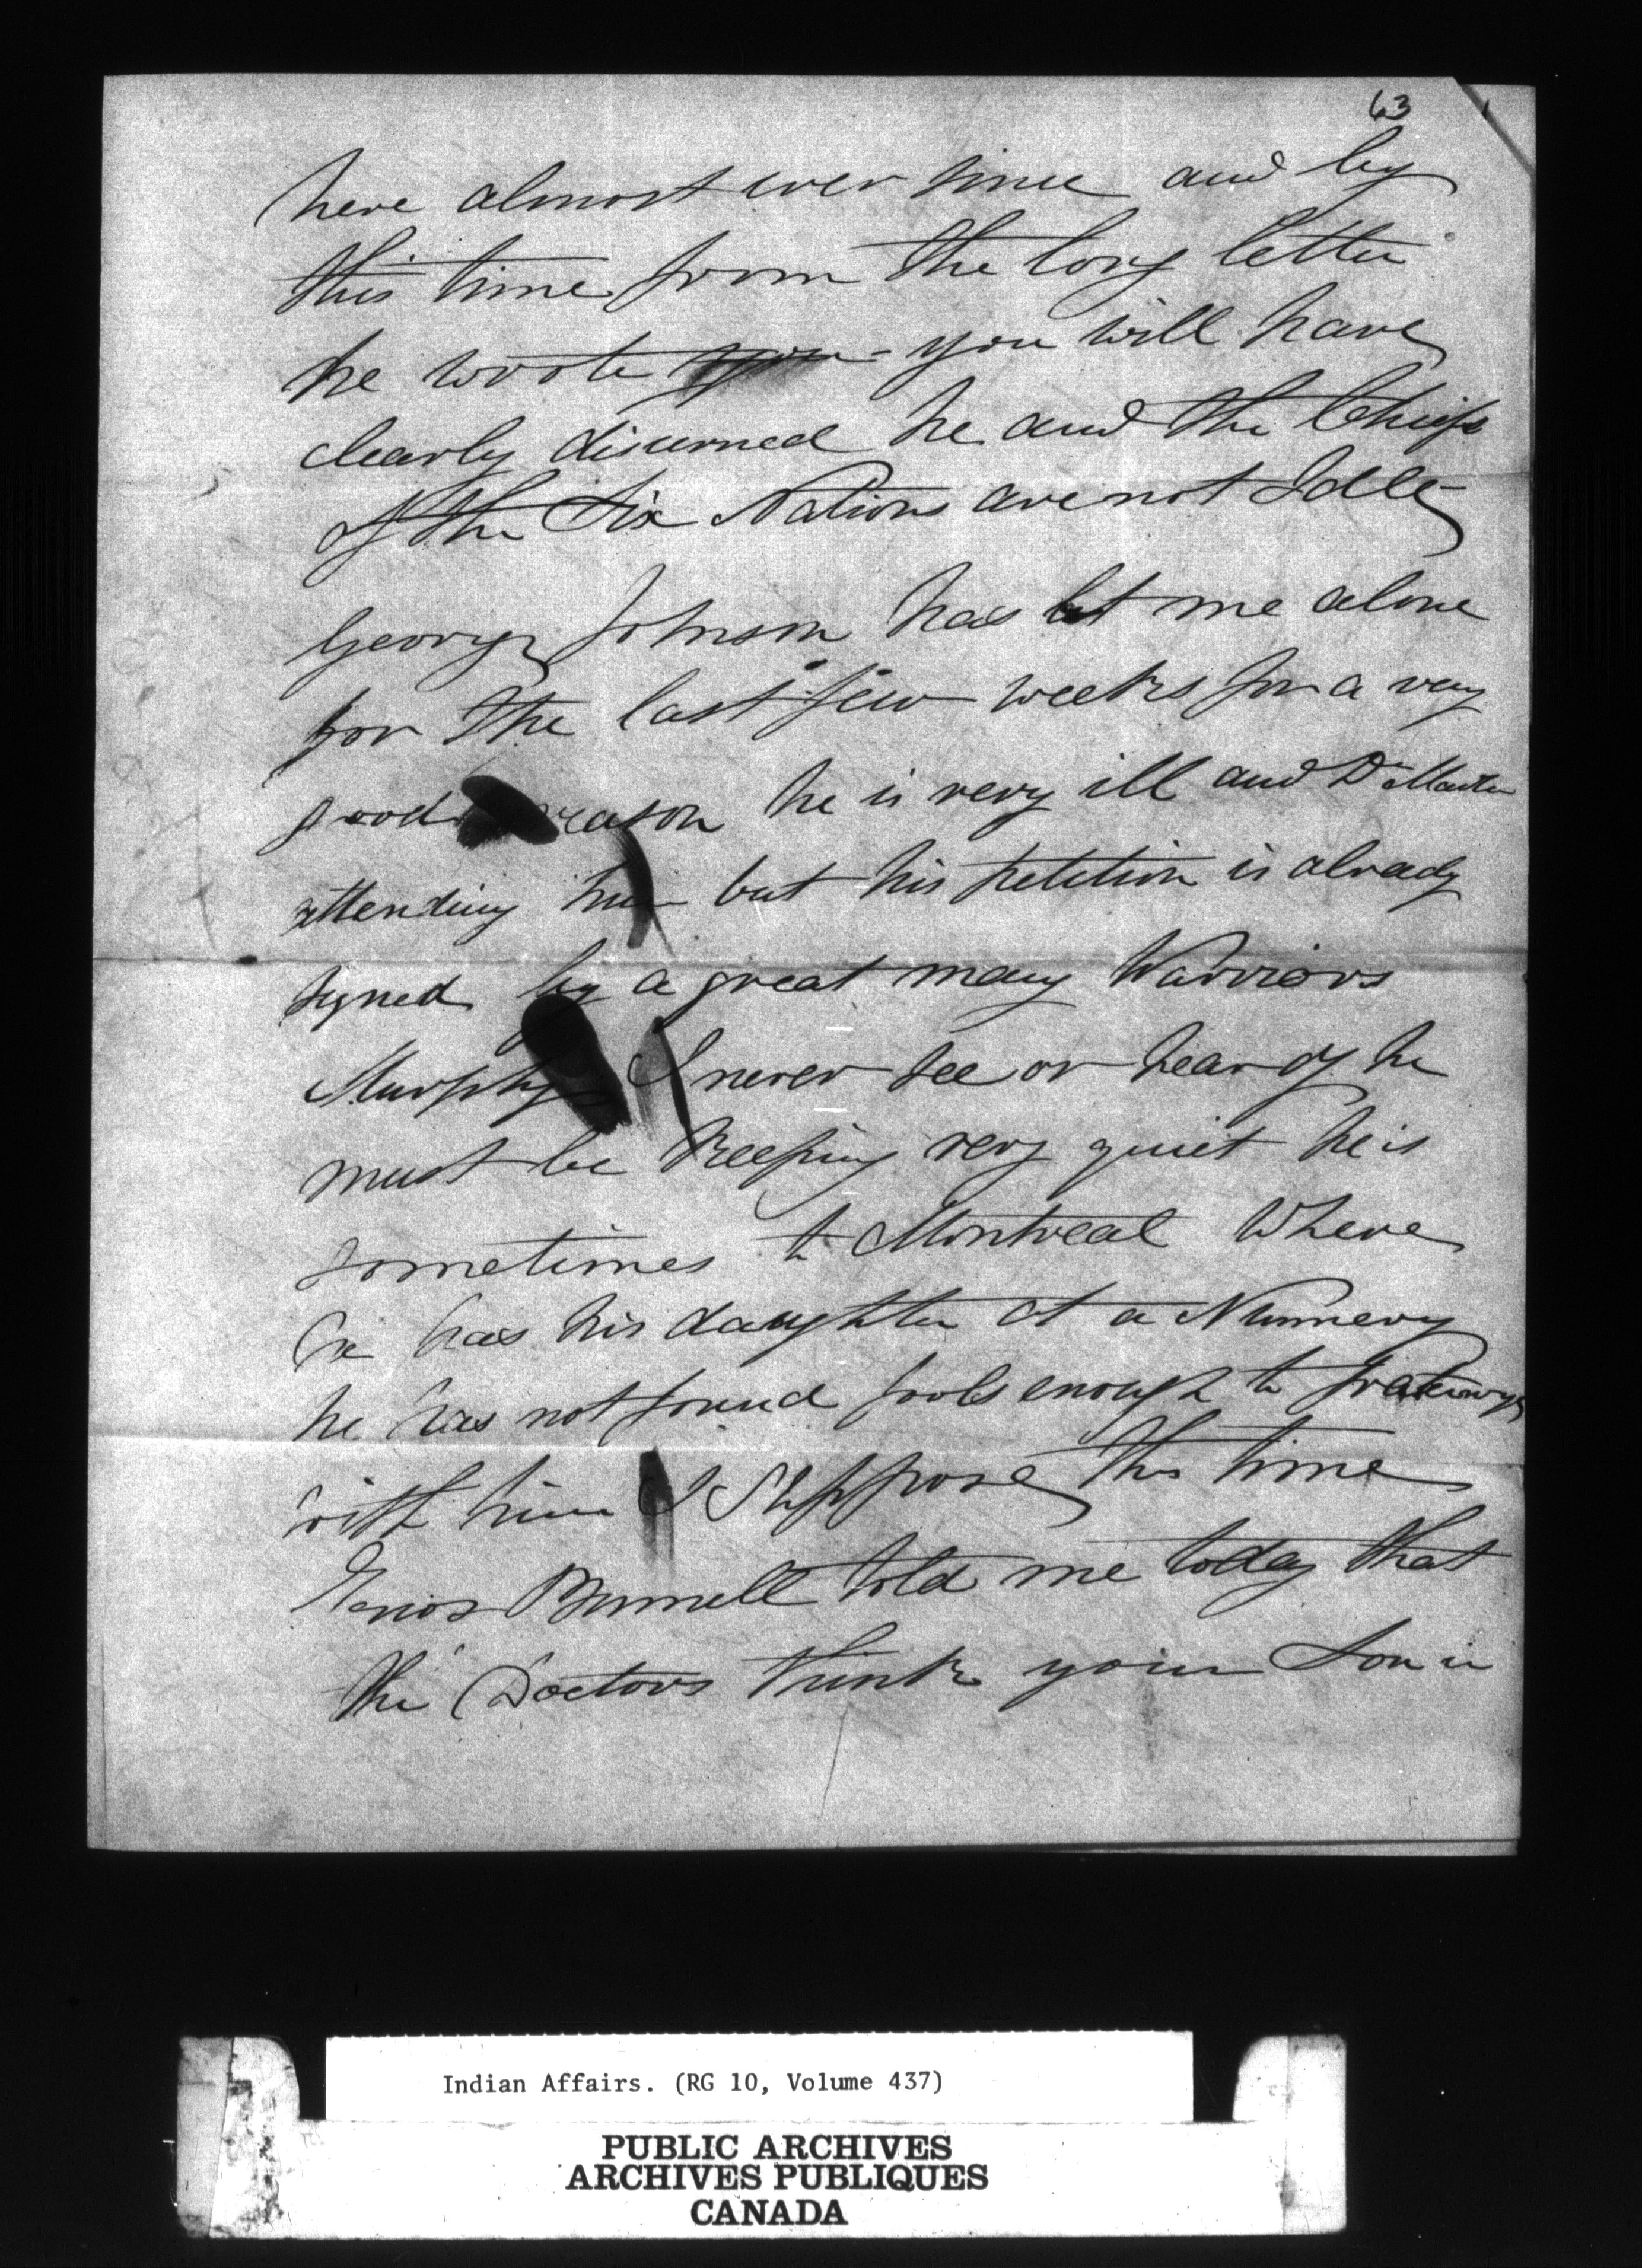 63
here almost ever since and by
this time from the long letter
he wrote you - you will have
clearly discerned he and the Chiefs
of the Six Nations are not Idle
George Johnson has let me alone
for the last few weeks for a very
good reason he is very ill and Dr
attending him but his petition is already
signed by a great many Warriors
Murphy I never see or hear of he
must be keeping very quiet he is
sometimes to Montreal Where
he has his daughter at a Nunnery
he has not found fools enough to
with him I Suppose this time
told me today that
the Doctors think your Son is
Indian Affairs. (RG 10, Volume 437)
PUBLIC ARCHIVES
ARCHIVES PUBLIQUES
CANADA